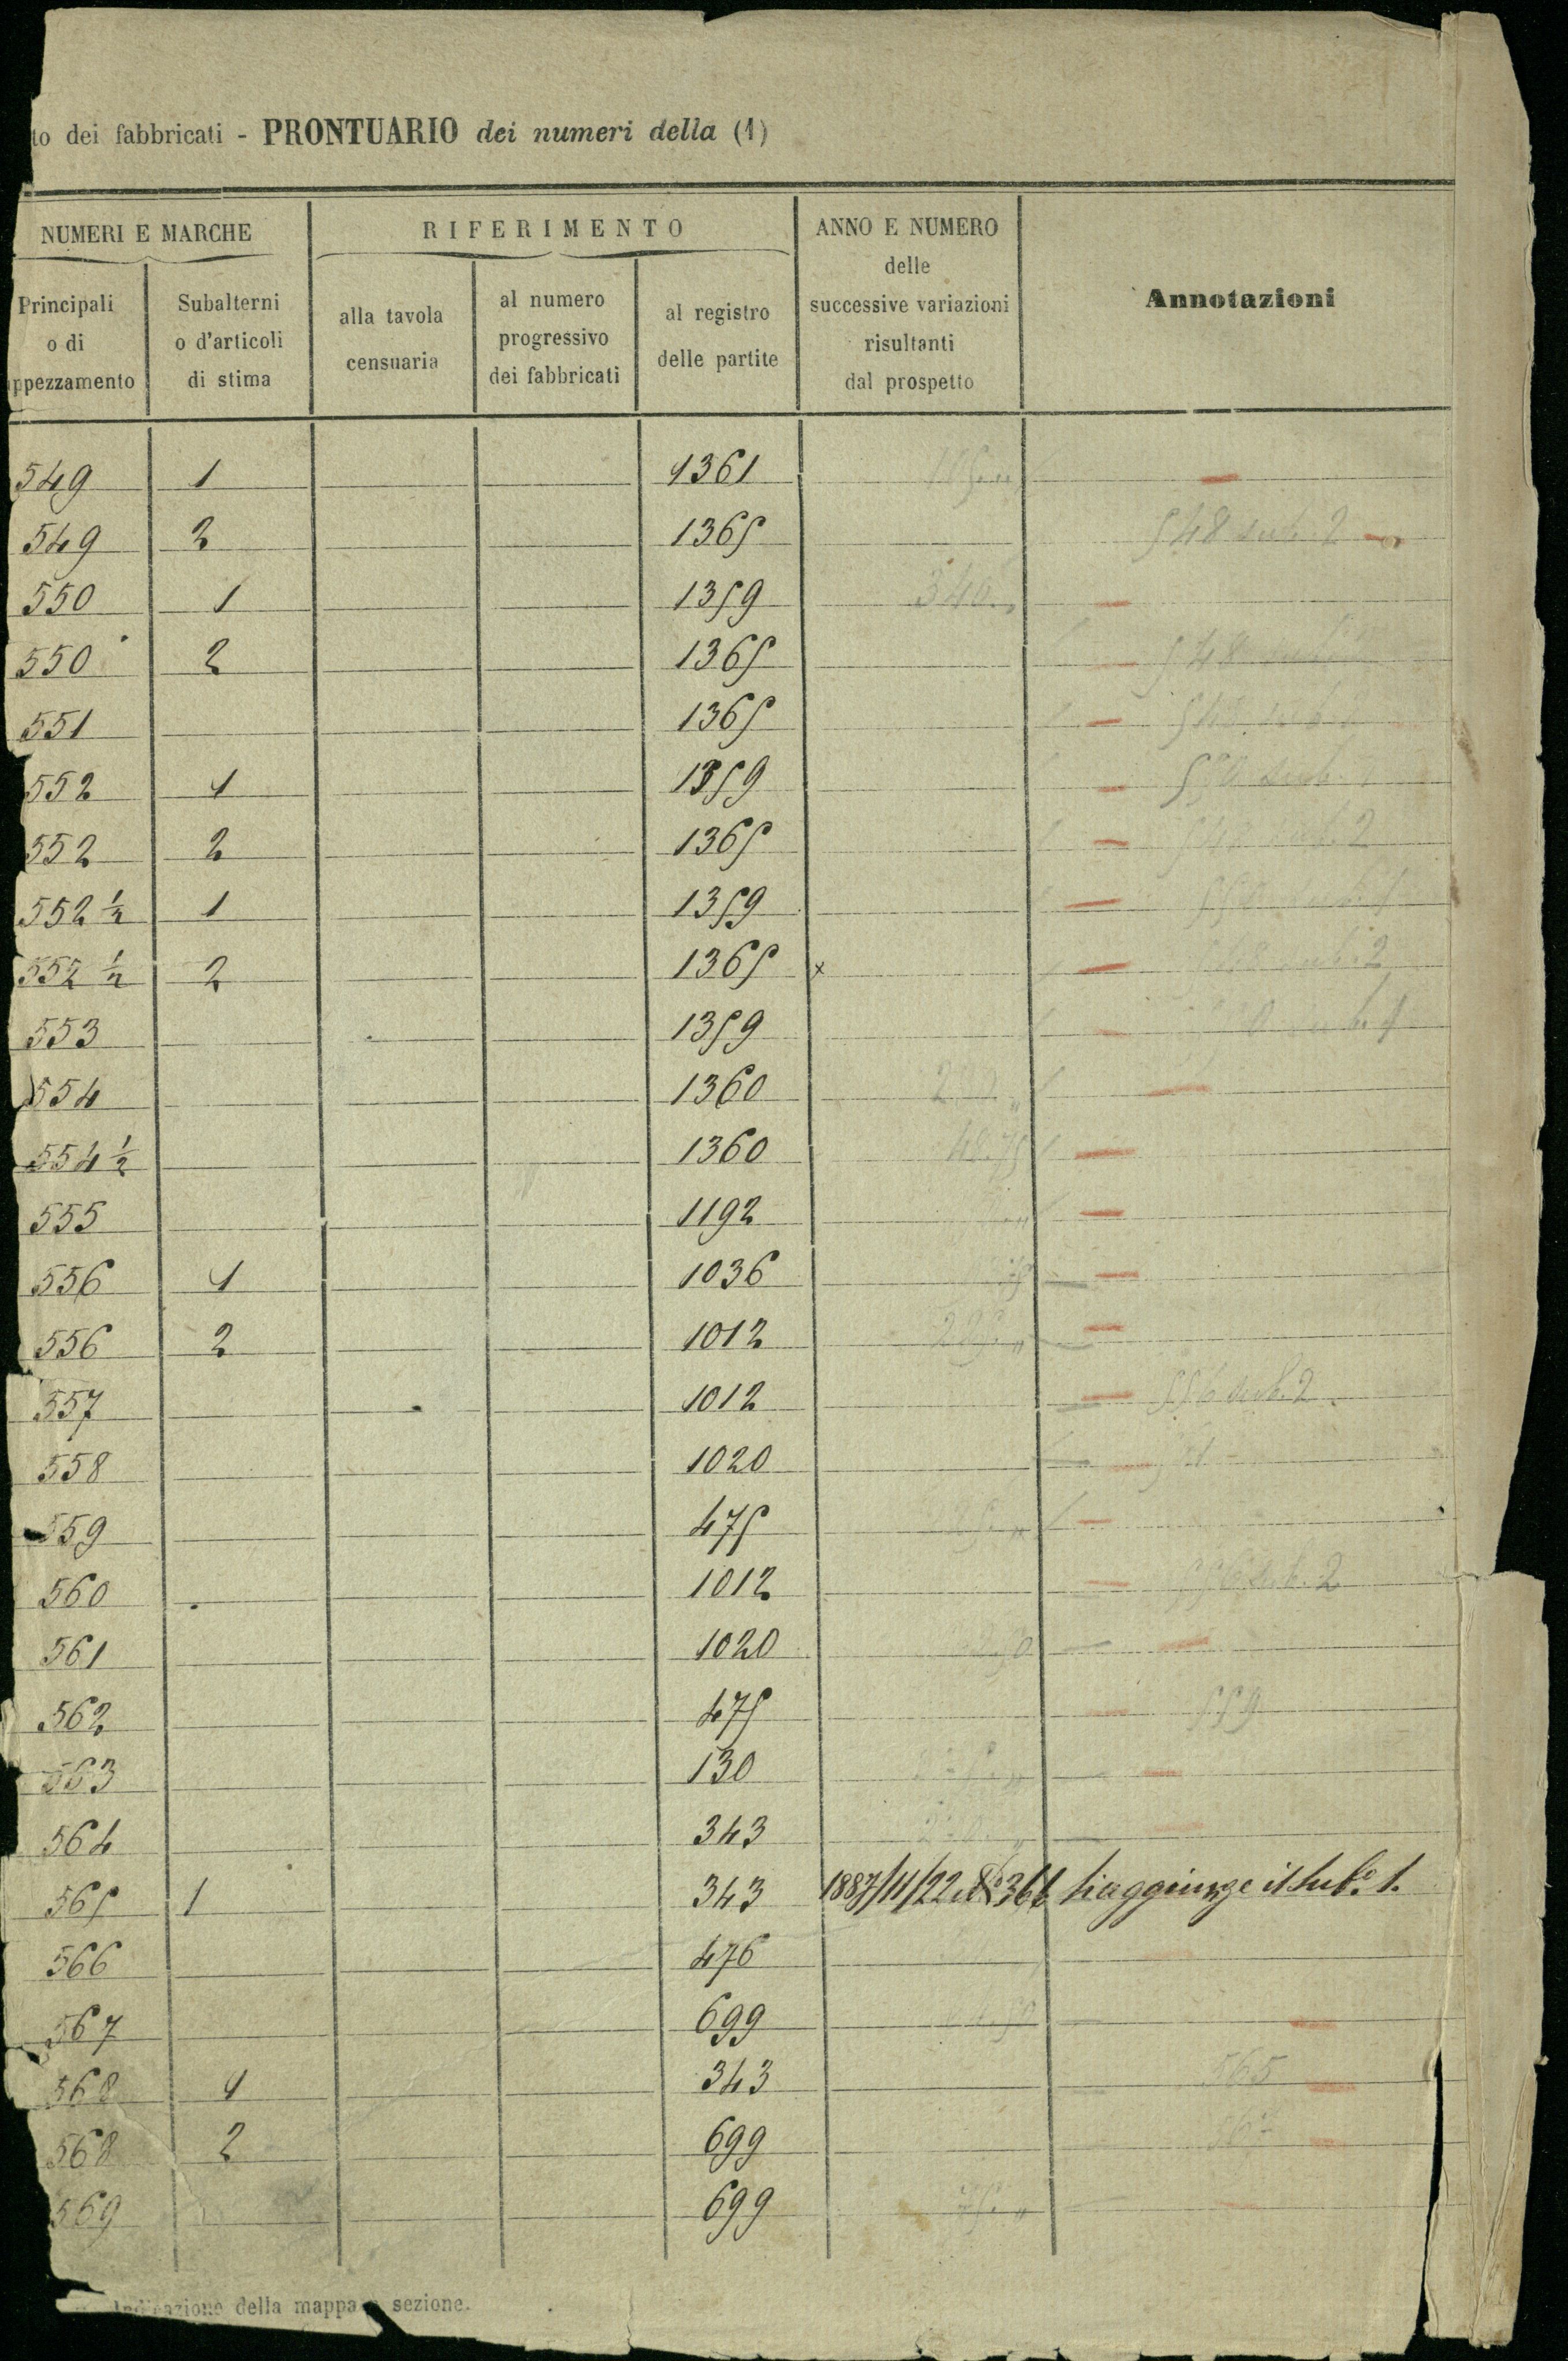 to dei fabbricati - PRONTUARIO dei numeri della (1)
NUMERI E MARCHE
RIFERIMENTO
ANNO E NUMERO
delle
successive variazioni
risultanti
dal prospetto
Annotazioni
Principali
o di
ppezzamento
Subalterni
o d'articoli
di stima
alla tavola
censuaria
al numero
progressivo
dei fabbricati
al registro
delle partite
549 1 1361
549 2 1365 548 sub. 2
550 1 1359 340
550 2 1365 548
551 1365
552 1 1359 550 sub.
552 2 1365 sub. 2
552 ½ 1 1359 550 sub. 1
552 ½ 2 1365 x sub. 2
553 1359 sub. 1
554 1360
554 ½ 1360 48.75
555 1192
556 1 1036
556 2 1012 225
557 1012 556 sub. 2
558 1020
559 475
560 1012 556 sub. 2
561 1020
562 475 559
563 130
564 343
565 1 343 1887/11/22 366 si aggiunge il sub.o 1.
566 476
567 699
568 1 343 565
568 2 699 567
569 699 75
Indicazione della mappa sezione.